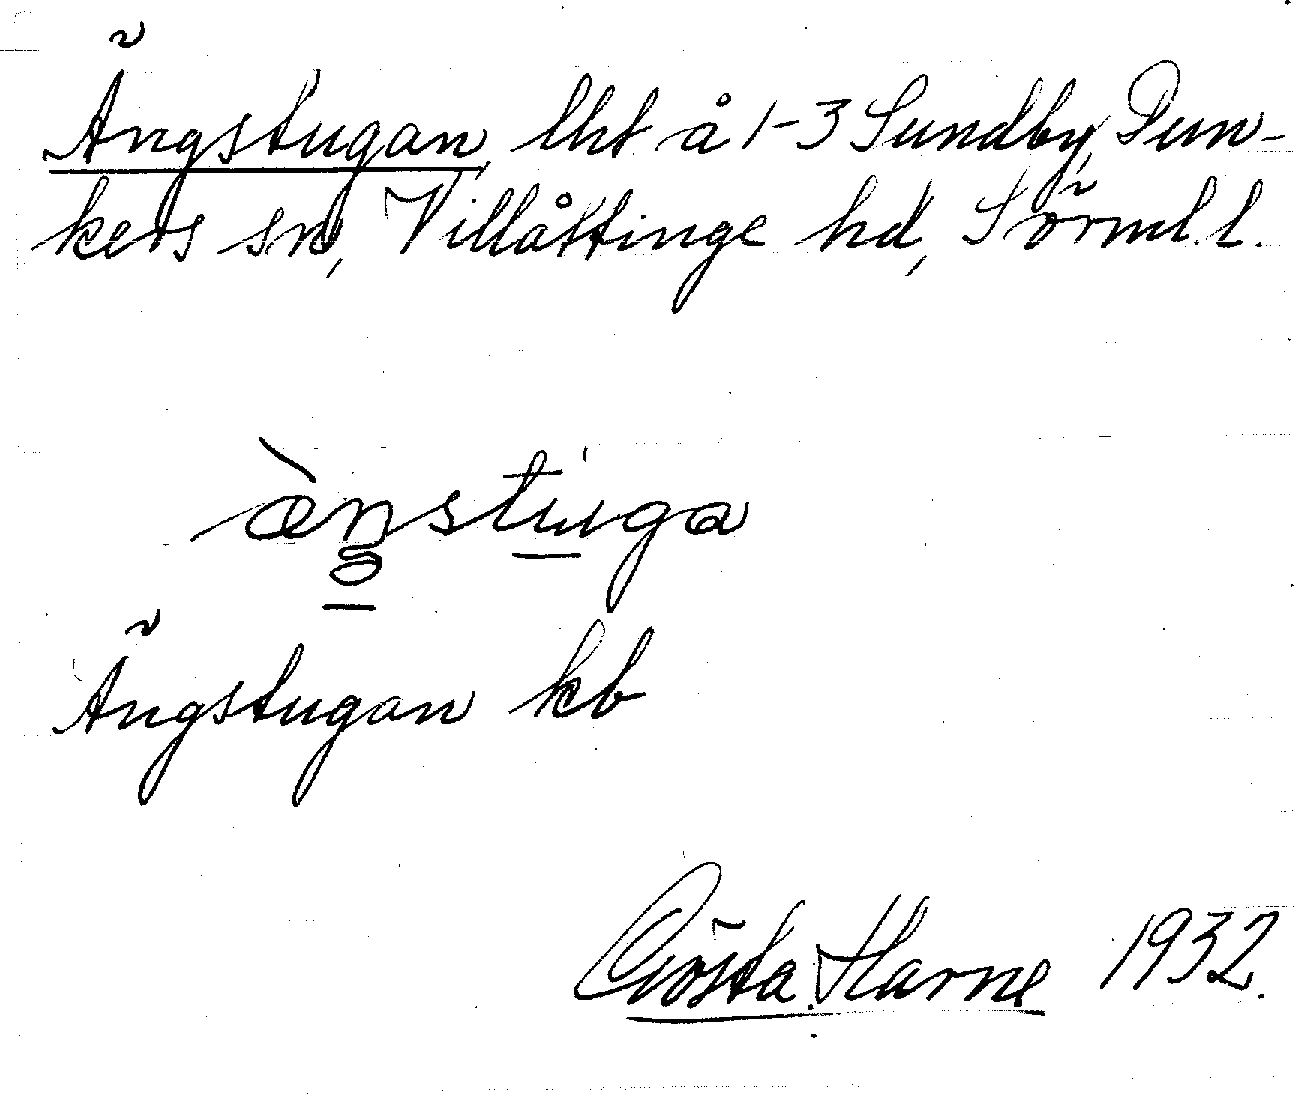 Ängstugan, lht å 1-3 Sundby, Dun-
kers sn, Villåttinge hd, Sörml. l.
æ̀ŋstu̲ga
Ängstugan kb
Gösta Harne 1932.